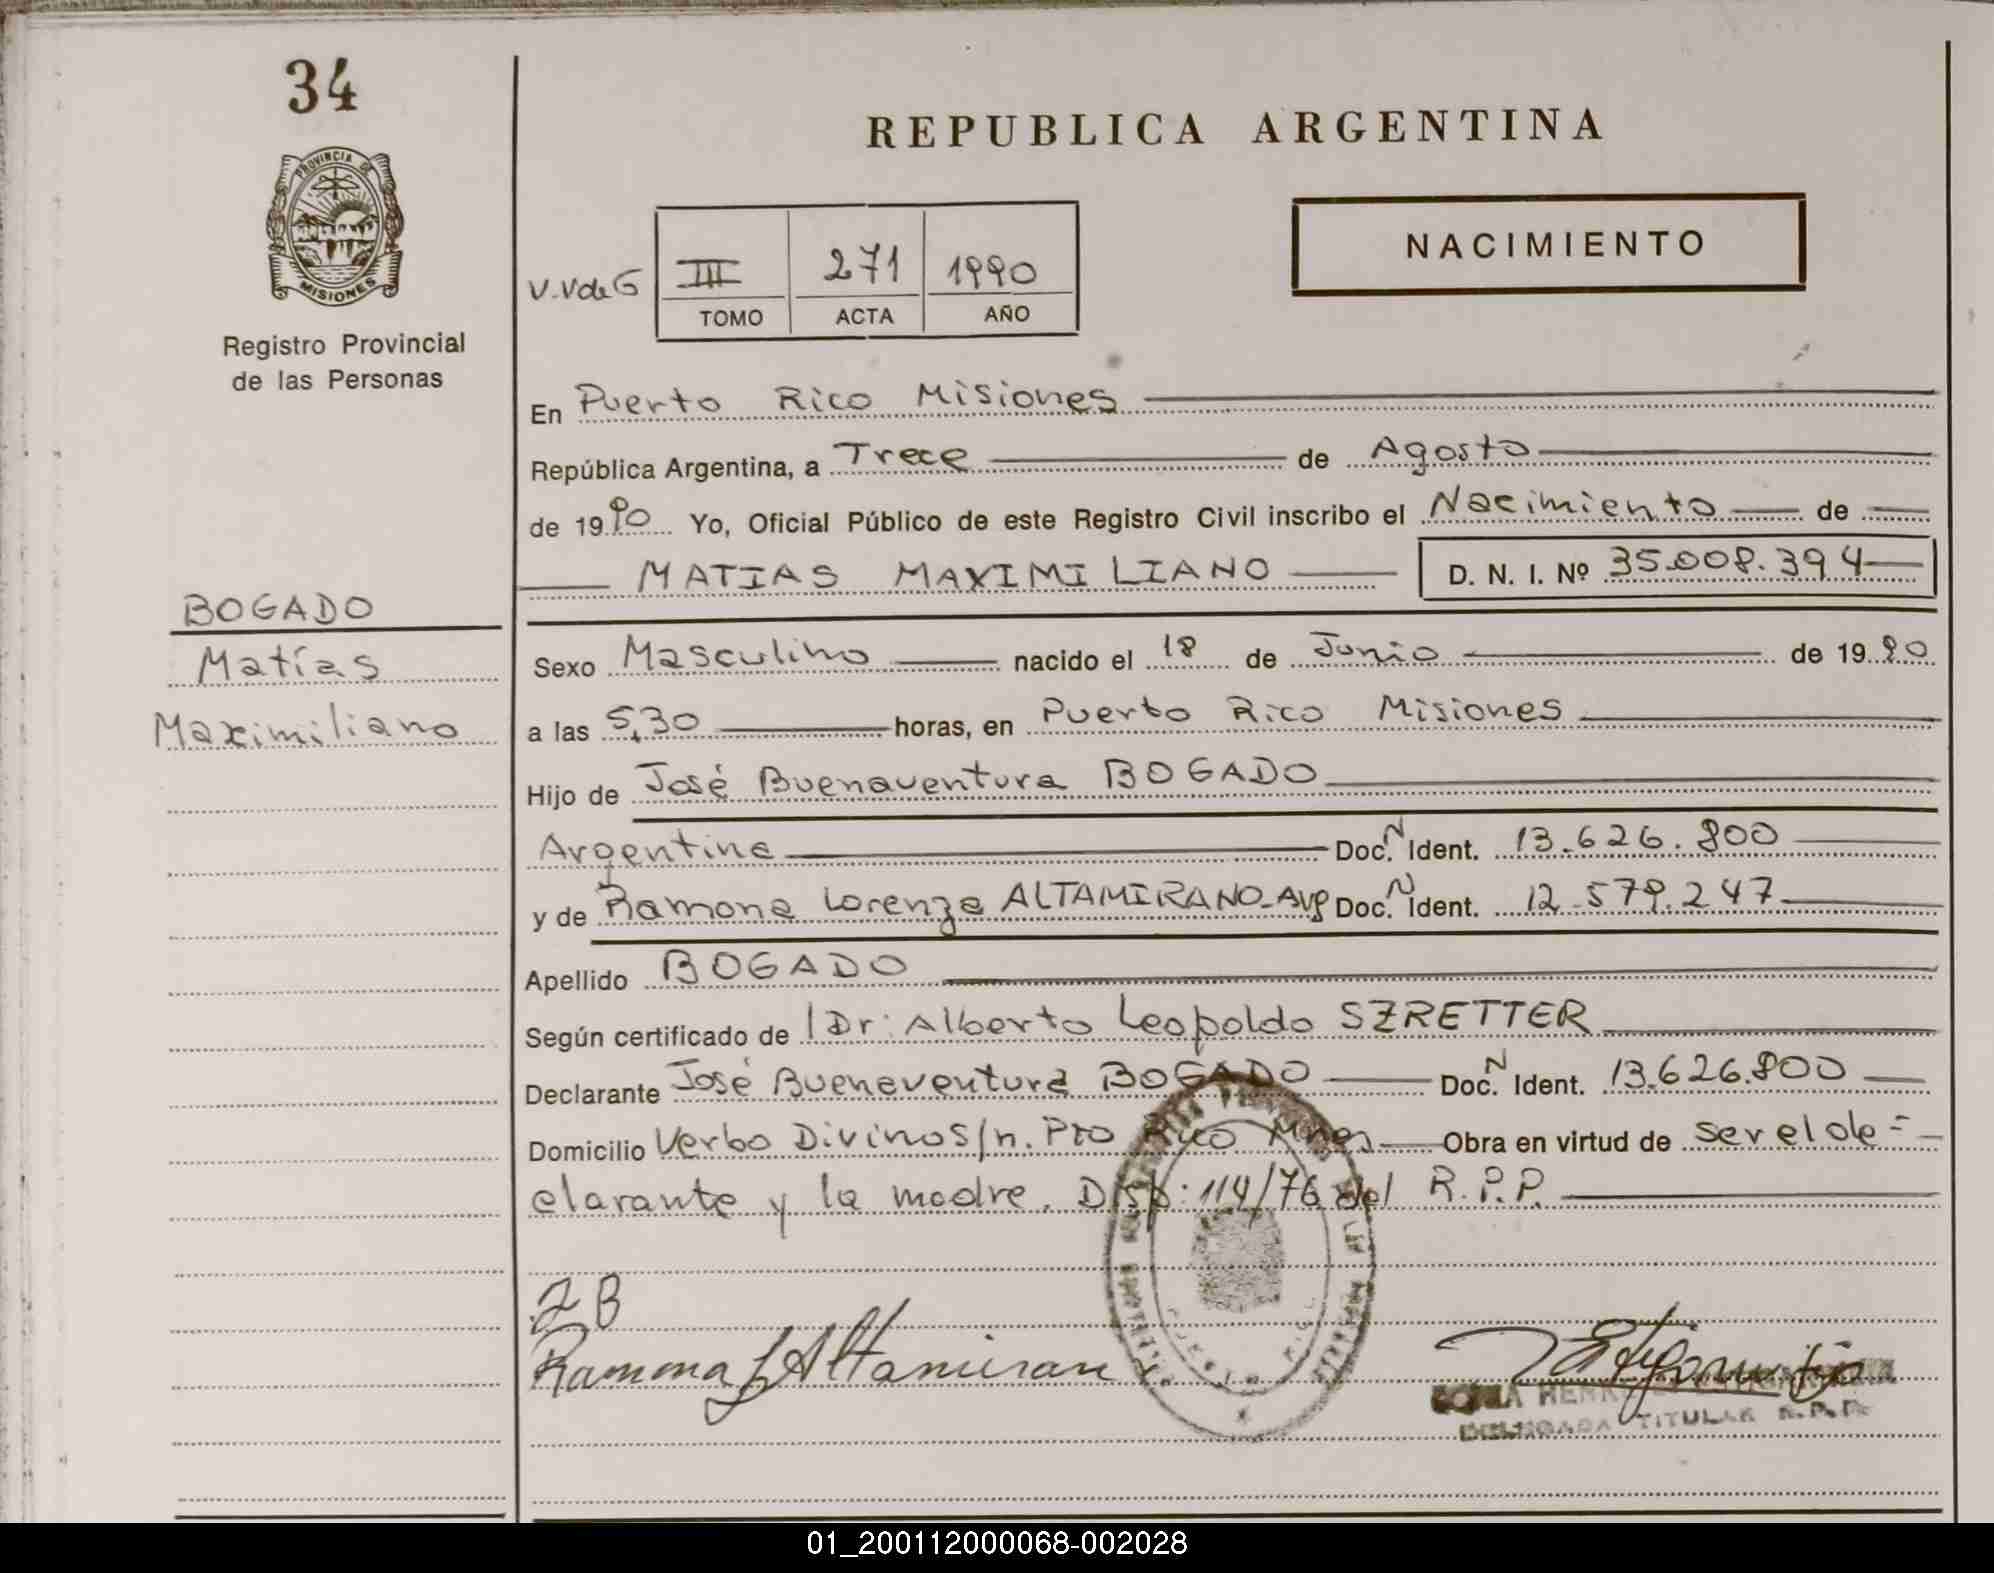 34
REPUBLICA ARGENTINA
PROVINCIA DE
MISIONES
Registro Provincial
de las Personas
NACIMIENTO
V.V de G
III 271 1990
TOMO ACTA AÑO
En Puerto Rico Misiones
República Argentina, a Trece de Agosto
de 1990 Yo, Oficial Público de este Registro Civil inscribo el Nacimiento de
MATIAS MAXIMILIANO D. N. I. Nº 35.008.394
BOGADO
Matías
Maximiliano
Sexo Masculino nacido el 18 de Junio de 1990
a las 5,30 horas, en Puerto Rico Misiones
Hijo de José Buenaventura BOGADO
Argentina Doc. N Ident. 13.626.800
y de Ramona Lorenza ALTAMIRANO-Arg Doc. N Ident. 12.579.247
Apellido BOGADO
Según certificado de Dr: Alberto Leopoldo SZRETTER
Declarante José Buenaventura BOGADO Doc. N Ident. 13.626.800
Domicilio Verbo Divino S/n. Pto Rico Mnes Obra en virtud de ser el de=
clarante y la madre. Disp: 114/76 del R.P.P.
JB
Ramona L Altamirano
TITULAR R.P.P.
01_200112000068-002028